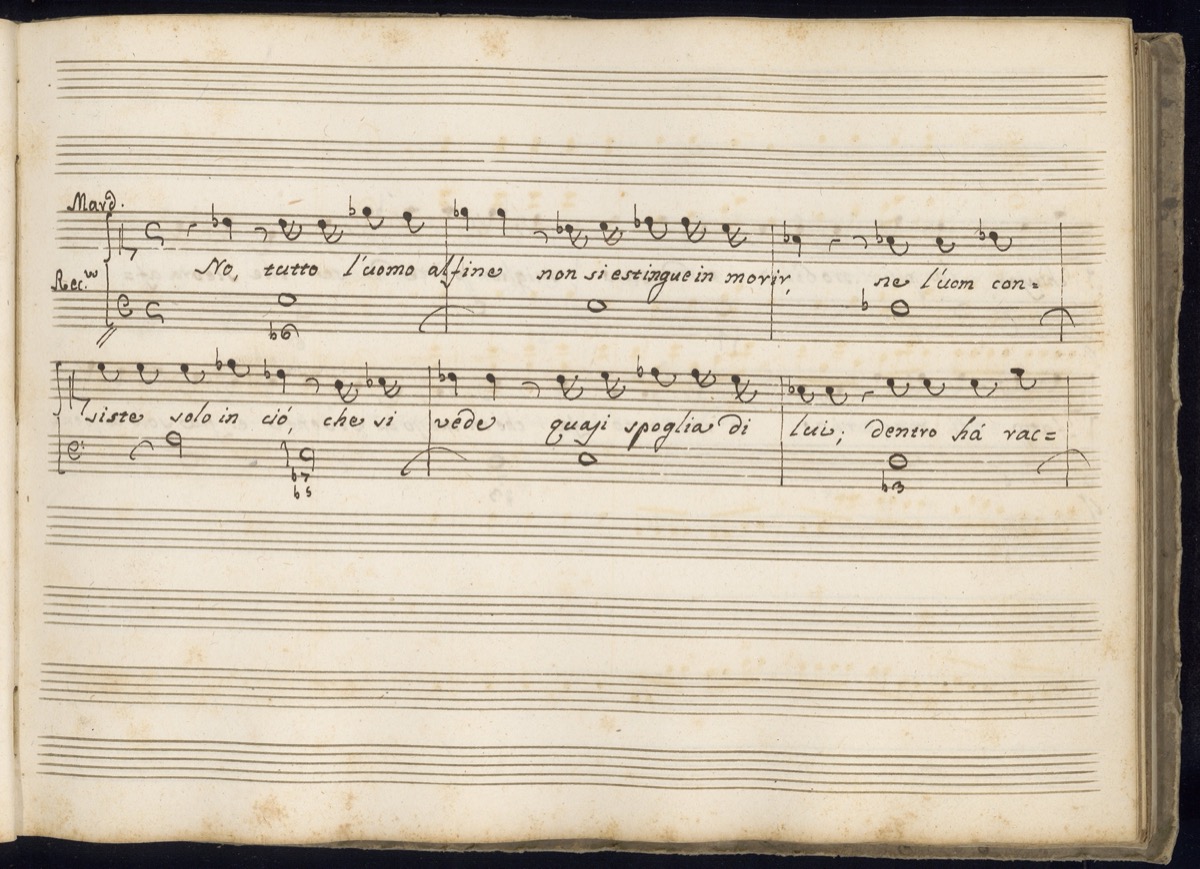 Mard.
No, tutto l'uomo alfine non si estingue in morir, ne l'uom con=
Rec.w
♭6
siste solo in ció, che si vede quasi spoglia di lui; dentro há rac=
♭7 ♭3
♭5